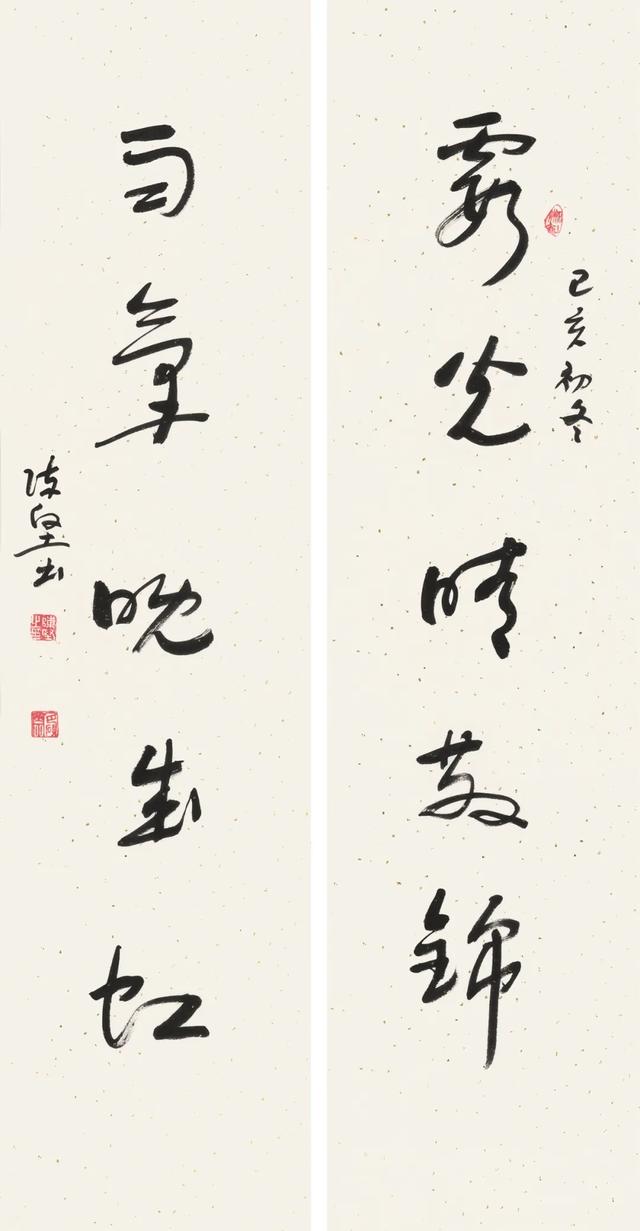 己亥初冬
霞光晴散錦
雨氣晚成虹
陳堅书